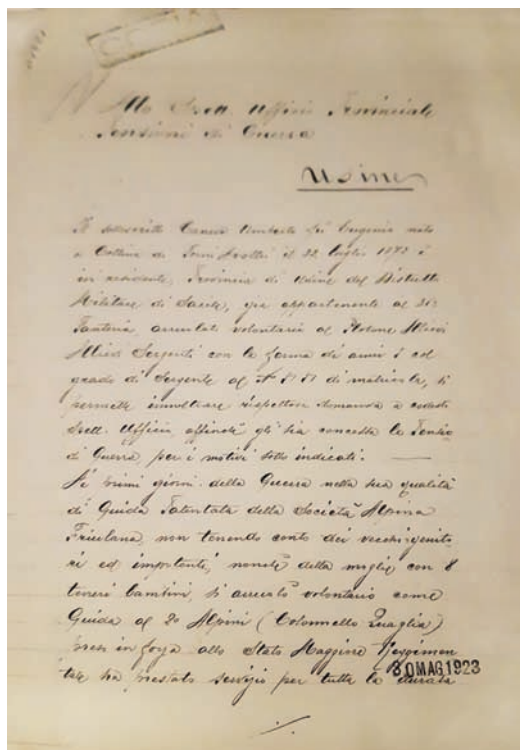 Allo Spett. Ufficio Provinciale
Pensioni di Guerra
Udine
Il sottoscritto Caneva Umberto fu Eugenio nato
a Collina di Forni Avoltri il 22 luglio
in residente, Provincia di Udine del Distretto
Militare di Sacile, già appartenente al
Fanteria, arruolato volontario al Plotone Allievi
Allievi Sergenti con la ferma di anni 5 col
grado di Sergente al N° di matricola, si
permette inoltrare rispettosa domanda a codesto
Spett. Ufficio, affinchè gli sia concessa la Pensione
di Guerra, per i motivi sotto indicati. —
Nei primi giorni della Guerra nella sua qualità
di Guida Patentata della Società Alpina
Friulana, non tenendo conto dei vecchi genito
ri ed impotenti, nonchè della moglie con 8
teneri bambini, si arruolò volontario come
Guida al Alpini (Colonnello Quaglia)
presi in forza allo Stato Maggiore Reggimen
tale ha prestato servizio per tutta la durata
30 MAG 1923